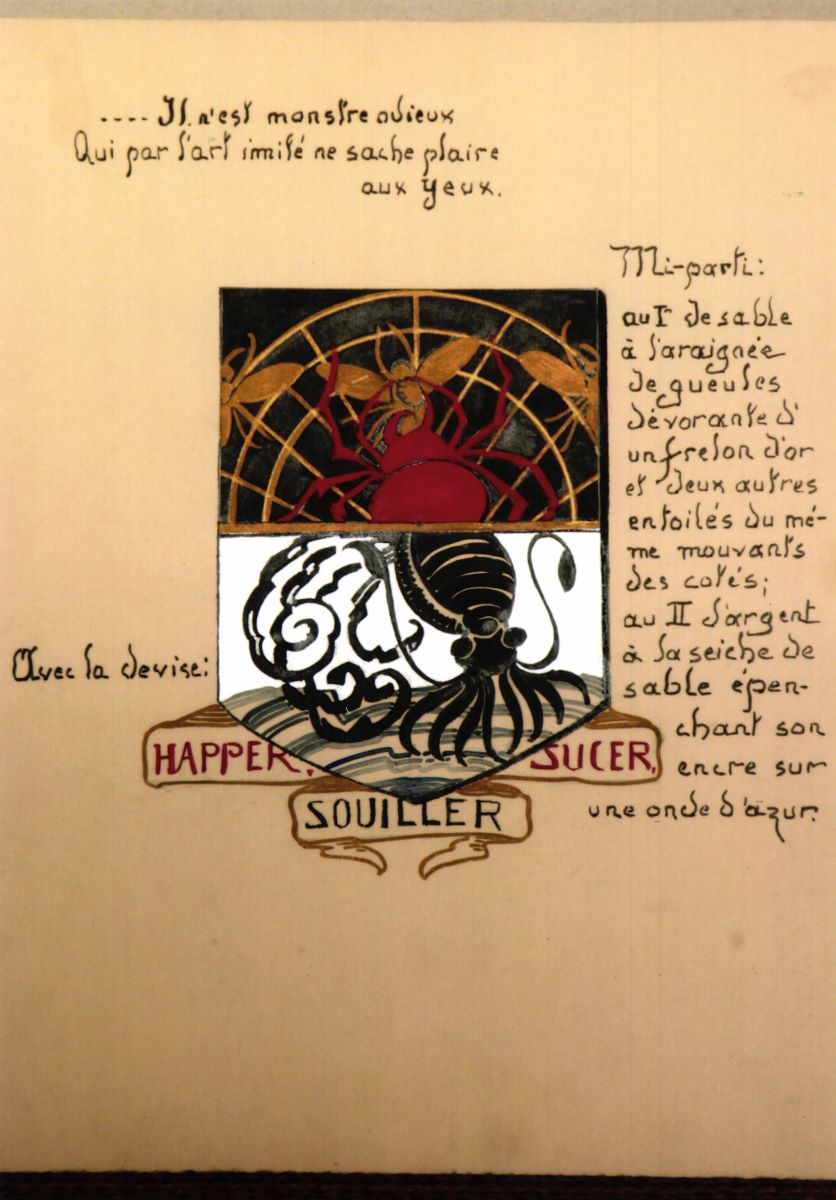 ---- Il n'est monstre odieux
Qui par l'art imité ne sache plaire
aux yeux.
Mi-parti:
au Iᵉʳ de sable
à l'araignée
de gueules
dévorante d'
un frelon d'or
et deux autres
entoilés du mê-
me mouvants
des cotés;
au II d'argent
à la seiche de
sable épen-
chant son
encre sur
une onde d'azur.
Avec la devise:
HAPPER, SUCER,
SOUILLER